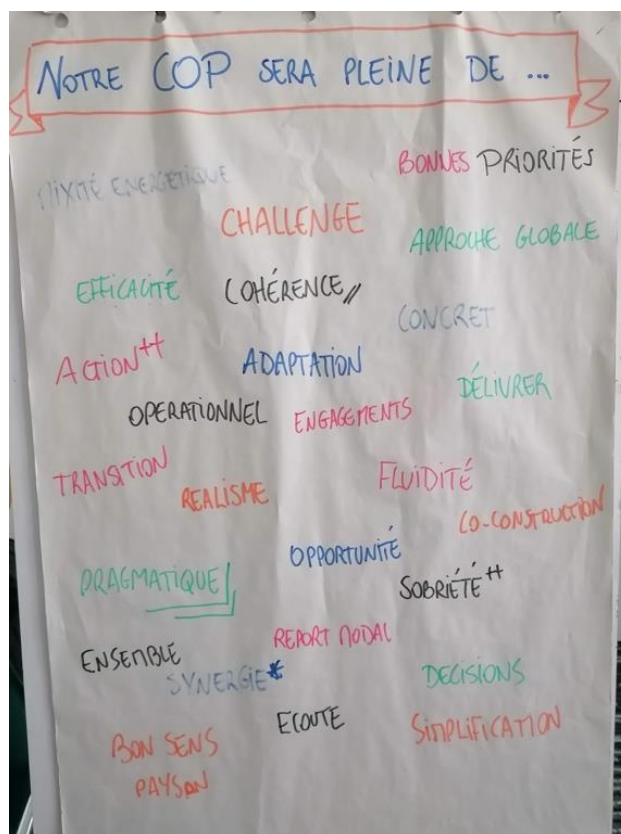 NOTRE COP SERA PLEINE DE ...
BONNES PRIORITÉS
MIXITÉ ENERGETIQUE
CHALLENGE
APPROCHE GLOBALE
EFFICACITÉ
COHÉRENCE //
CONCRET
ACTION++
ADAPTATION
DÉLIVRER
OPERATIONNEL
ENGAGEMENTS
TRANSITION
FLUIDITÉ
REALISME
CO-CONSTRUCTION
OPPORTUNITÉ
PRAGMATIQUE
SOBRIÉTÉ++
REPORT MODAL
ENSEMBLE
SYNERGIE*
DECISIONS
ECOUTE
SIMPLIFICATION
BON SENS
PAYSAN